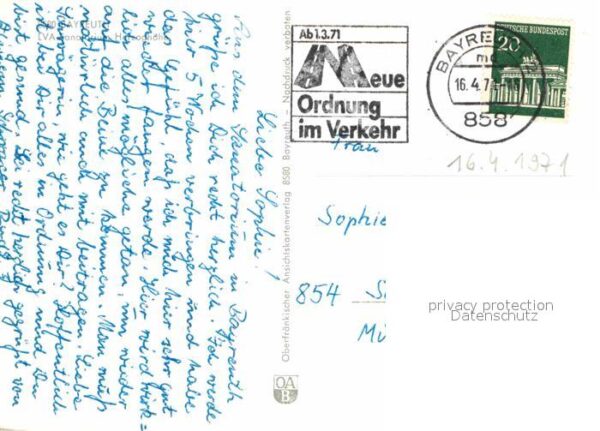 8580 BAYREUTH
LVA-Sanatorium Herzoghöhe
Liebe Sophie!
Aus dem Sanatorium in Bayreuth
grüße ich Dich recht herzlich. Ich werde
hier 5 Wochen verbringen und habe
das Gefühl, daß ich mich hier sehr gut
wieder fangen werde. Hier wird wirk=
lich alles mögliche getan, um wieder
auf die Beine zu kommen. Man muß
natürlich auch mit beitragen. Liebe
Schwägerin, wie geht es Dir? Hoffentlich
ist bei Dir alles in Ordnung und Du
bist gesund. Sei recht herzlich gegrüßt von
Deinem Schwager
Oberfränkischer Ansichtskartenverlag 8580 Bayreuth – Nachdruck verboten
OA
B
Ab 1.3.71
Neue
Ordnung
im Verkehr
BAYRE
md
16.4.7
858
DEUTSCHE BUNDESPOST
20
16.4.1971
Frau
Sophie
854 S
Mü
privacy protection
Datenschutz